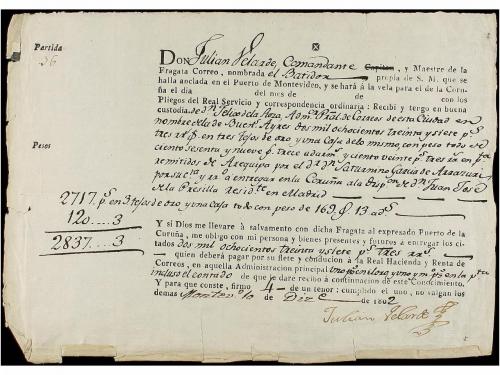 Partida
36
DON Julian Velarde, Comandante Capitan, y Maestre de la
Fragata Correo, nombrada el Batidor propia de S. M. que se
halla anclada en el Puerto de Montevideo, y se hará á la vela para el de la Coru-
ña el dia del mes de de con los
Pliegos del Real Servicio y correspondencia ordinaria: Recibí y tengo en buena
custodia, de Dn Felix de la Adm.r Pral de Correos de esta Ciudad en
nombre de la de Buen.s Ayres dos mil ochocientos treinta y siete ps
tres rs en tres tejos de oro y una Caja de lo mismo, con peso todo de
ciento sesenta y nueve trece y ciento veinte ps tres rs en pta
remitidos de Arequipa por el Dn Saturnino Garcia de
Pesos
por su cta y ro á entregar en la Coruña á la dispon de Dn Juan José
de la Presilla Resid.te en Madrid
2717 ps en 3 tejos de oro y una Caja todo con peso de 169 13
120...3
2837...3
Y si Dios me llevare á salvamento con dicha Fragata al expresado Puerto de la
Coruña, me obligo con mi persona y bienes presentes y futuros á entregar los ci-
tados dos mil ochocientos treinta y siete ps tres rs
quien deberá pagar por su flete y conducion á la Real Hacienda y Renta de
Correos, en aquella Administracion principal uno en el oro y uno y en la pta
incluso el contado de que je dare recibo á continuacion de este Conocimiento.
Y para que conste, firmo 4 de un tenor: cumplido el uno, no valgan los
demas Montev.o 10 de Diz.e de 1802
Julian Velarde